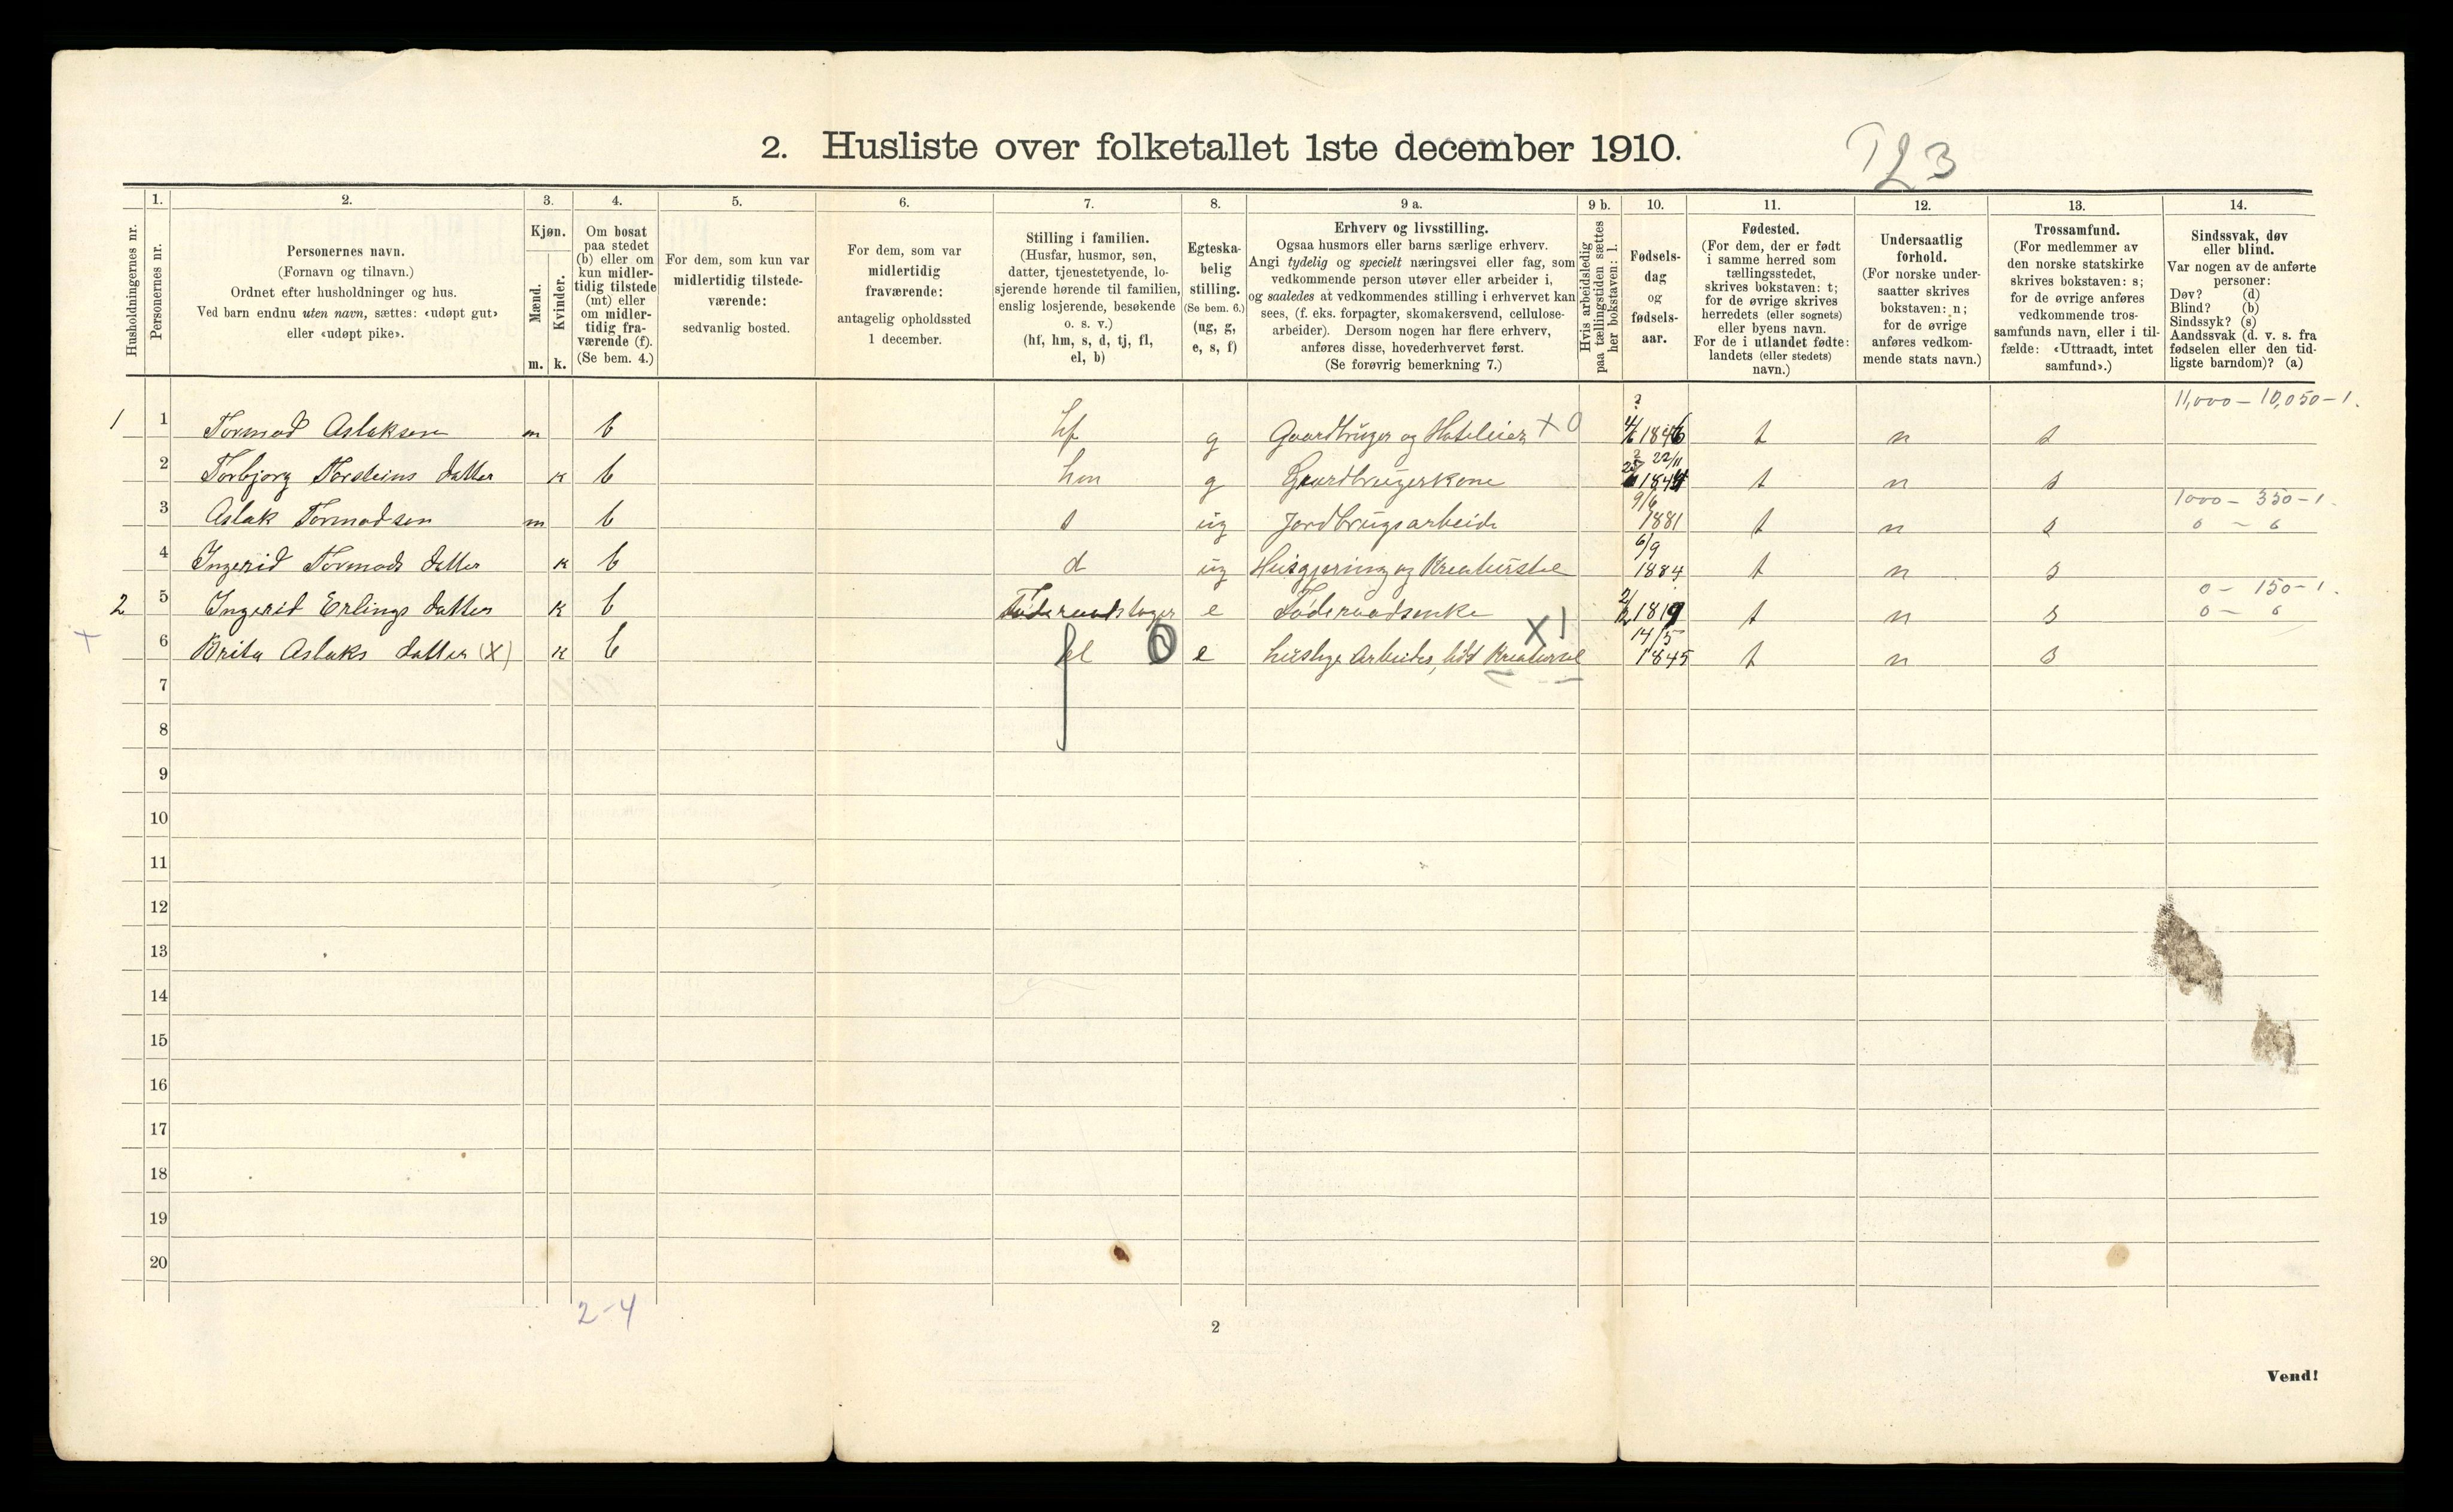 2. Husliste over folketallet 1ste december 1910.
T23
Husholdningernes nr.
1.
Personernes nr.
2.
Personernes navn.
(Fornavn og tilnavn.)
Ordnet efter husholdninger og hus.
Ved barn endnu uten navn, sættes: «udøpt gut»
eller «udøpt pike».
3.
Kjøn.
Mænd.
Kvinder.
m. k.
4.
Om bosat
paa stedet
(b) eller om
kun midler-
tidig tilstede
(mt) eller
om midler-
tidig fra-
værende (f).
(Se bem. 4.)
5.
For dem, som kun var
midlertidig tilstede-
værende:
sedvanlig bosted.
6.
For dem, som var
midlertidig
fraværende:
antagelig opholdssted
1 december.
7.
Stilling i familien.
(Husfar, husmor, søn,
datter, tjenestetyende, lo-
sjerende hørende til familien,
enslig losjerende, besøkende
o. s. v.)
(hf, hm, s, d, tj, fl,
el, b)
8.
Egteska-
belig
stilling.
(Se bem. 6.)
(ug, g,
e, s, f)
9 a.
Erhverv og livsstilling.
Ogsaa husmors eller barns særlige erhverv.
Angi tydelig og specielt næringsvei eller fag, som
vedkommende person utøver eller arbeider i,
og saaledes at vedkommendes stilling i erhvervet kan
sees, (f. eks. forpagter, skomakersvend, cellulose-
arbeider). Dersom nogen har flere erhverv,
anføres disse, hovederhvervet først.
(Se forøvrig bemerkning 7.)
9 b.
Hvis arbeidsledig
paa tællingstiden sættes
her bokstaven: l.
10.
Fødsels-
dag
og
fødsels-
aar.
11.
Fødested.
(For dem, der er født
i samme herred som
tællingsstedet,
skrives bokstaven: t;
for de øvrige skrives
herredets (eller sognets)
eller byens navn.
For de i utlandet fødte:
landets (eller stedets)
navn.)
12.
Undersaatlig
forhold.
(For norske under-
saatter skrives
bokstaven: n;
for de øvrige
anføres vedkom-
mende stats navn.)
13.
Trossamfund.
(For medlemmer av
den norske statskirke
skrives bokstaven: s;
for de øvrige anføres
vedkommende tros-
samfunds navn, eller i til-
fælde: «Uttraadt, intet
samfund».)
14.
Sindssvak, døv
eller blind.
Var nogen av de anførte
personer:
Døv? (d)
Blind? (b)
Sindssyk? (s)
Aandssvak (d. v. s. fra
fødselen eller den tid-
ligste barndom)? (a)
11,000 – 10,050 – 1.
1 1 Tormod Aslaksen m b hf g Gaardbruger og Hoteleier X 0 1846 t n s
2 Torbjørg Torsteins datter k b hm g Gaardbrugerkone 22/11 184 t n s
1000 – 350 – 1.
3 Aslak Tormodsen m b s ug Jordbrugsarbeide 9/6 1881 t n s 0 – 0
4 Ingerid Tormods datter k b d ug Husgjerning og Kreaturstel 6/9 1884 t n s
0 – 150 – 1.
2 5 Ingerid Erlings datter k b Føderaadstager e Føderaadsenke 1819 t n s 0 – 0
+ 6 Brita Aslaks datter (X) k b fl 0 e huslige Arbeider, lidt Kreaturstel X 1 14/5 1845 t n s
7
8
9
10
11
12
13
14
15
16
17
18
19
20
2-4
2
Vend!